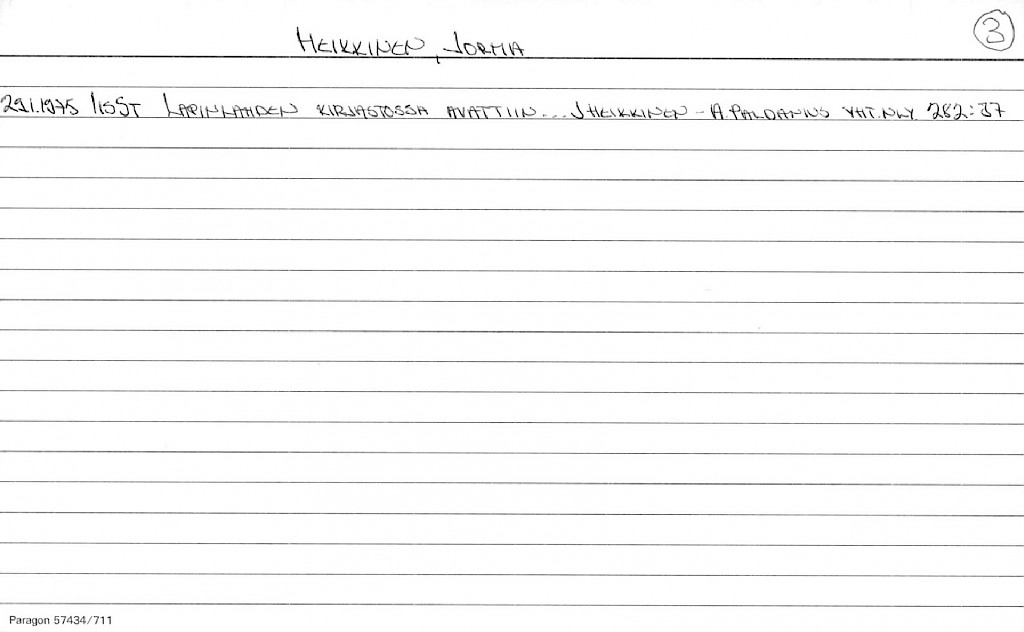 HEIKKINEN, JORMA
3
29.1.1975 IISST LAPINLAHDEN KIRJASTOSSA AVATTIIN... J.HEIKKINEN - A.PALDANIUS YHT.NLY 282:37
Paragon 57434/711